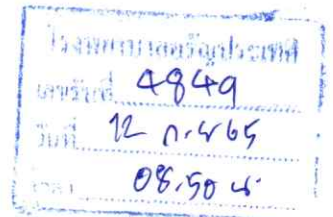 โรงพยาบาลอรัญประเทศ
เลขรับที่ 4849
วันที่ 12 ก.ย 65
เวลา 08.50 น.